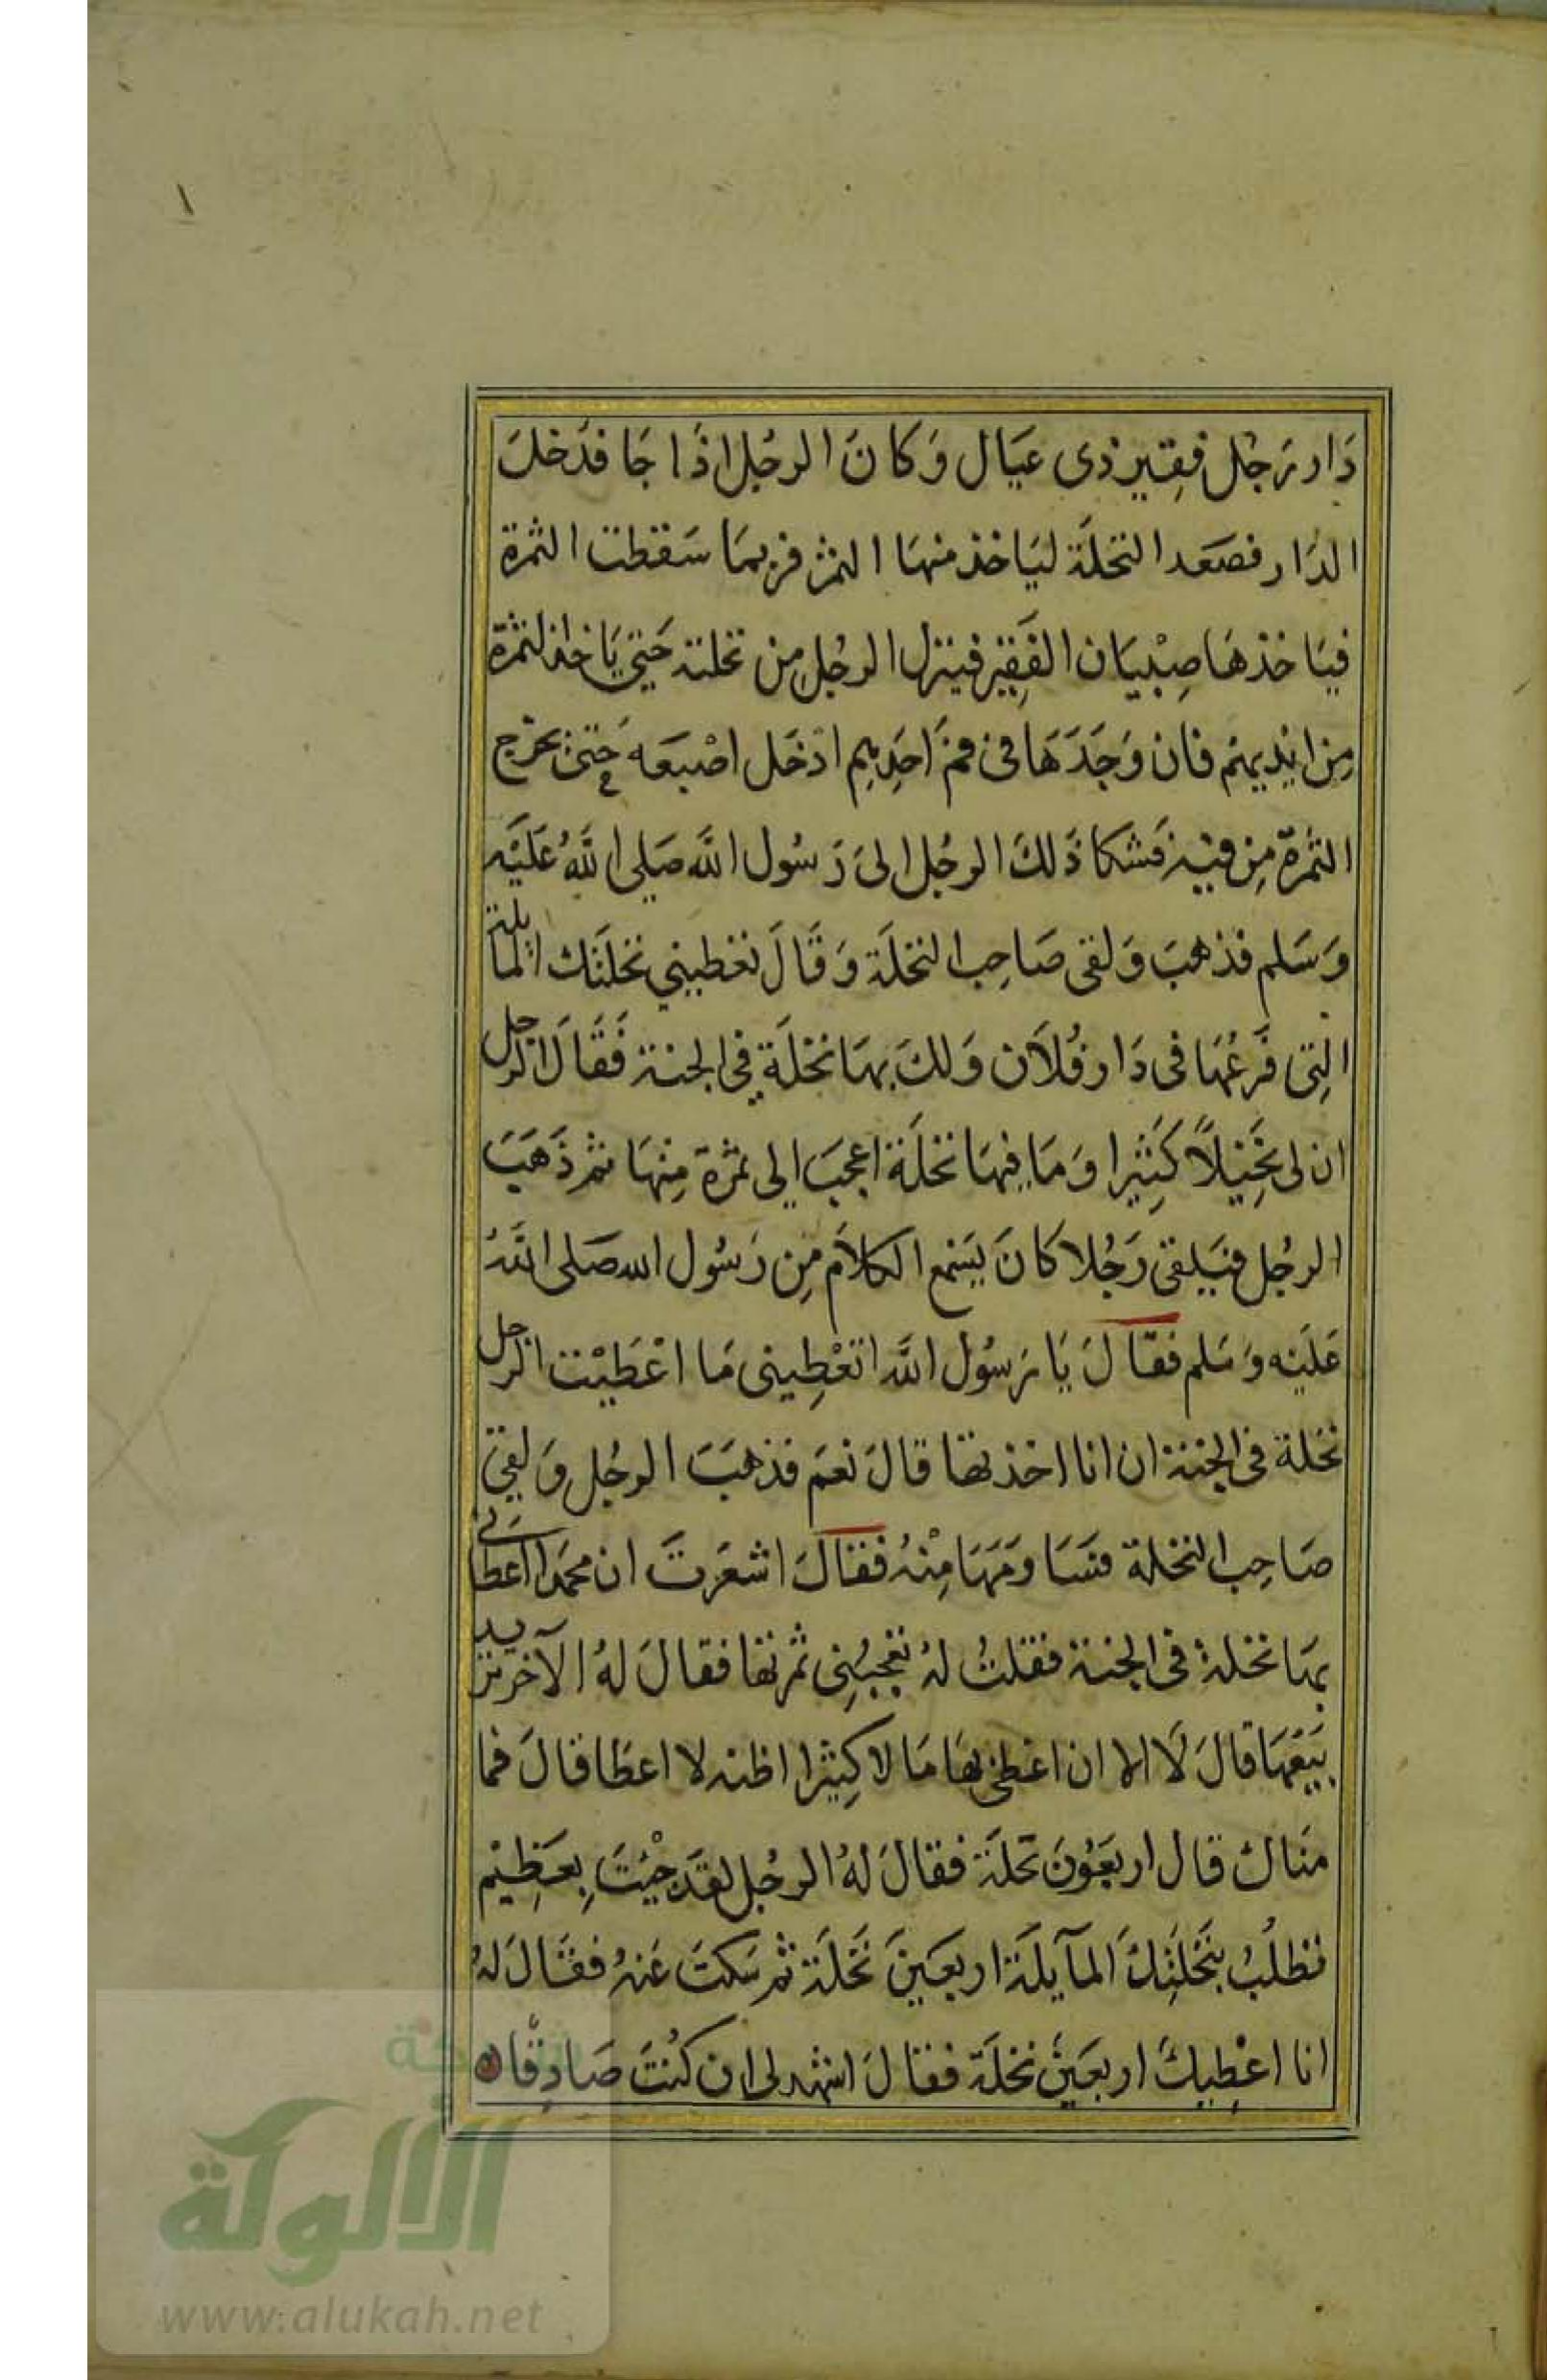 دَار رَجُل فقِير ذى عيَال وَكانَ الرجُل اذَا جَا فدَخلَ
الدَار فصَعد النخلَة ليَاخذ منهَا التمر فربمَا سَقطت التمرة
فيَاخذهَا صِبْيَان الفَقِير فينزل الرجُل مِن نخلته حَتى يَاخذ التمرة
مِن ايْديهِم فان وَجَدَهَا فى فم احَدِهِم ادْخَل اصْبعَه حتى يخرج
التمرَة مِن فيه فشكا ذَلكَ الرجُل الىَ رَسُول اللَّه صَلى اللَّهُ عَلَيْه
وَسَلم فذهبَ وَلقى صَاحِب النخلَة وَقَالَ تعْطيني نخلَتك المايلة
التِى فَرعُهَا فى دَار فُلاَن وَلكَ بهَا نخْلَة فِى الجنة فَقَالَ الرجل
ان لى نَخِيْلاً كَثِيْرا وَمَا فِيهَا نخْلَة اعجبَ الى ثمرَة مِنْهَا ثم ذَهَبَ
الرجُل فيَلقى رَجُلا كَانَ يَسْمع الكلاَم مِن رَسُول الله صَلى اللَّهُ
عَلَيْه وَسَلم فقالَ يَا رَسُول اللَّه اتعْطِينى مَا اعْطَيْت الرجل
نخَلة فى الجنة ان انا اخذتها قالَ نعَم فذهَبَ الرجُل وَلقى
صَاحِب النخلة فسَاومَهَا مِنْهُ فقالَ اشعَرتَ ان محمدا اعطانى
بهَا نخلة فى الجنة فقلتُ لهُ يُعْجبُنِى ثمرتها فقالَ لهُ الآخر تريد
بَيْعَهَا قالَ لَا الا ان اعْطى بهَا مَا لا كثِيْرا اظنه لا اعطَا قالَ فما
مناك قال اربعَوُنَ نخَلَة فقالَ لهُ الرجُل لقد جْئتَ بِعَظِيْم
تطلُبُ بنَخْلَتِكَ المآيلَة اربَعَينَ نَخْلَة ثم سَكتَ عَنهُ فقالَ لهُ
انا اعْطِيكَ اربَعَينَ نخلَة فقالَ اشهد لى ان كنُتَ صَادِقًا
شبكة
الألوكة
www.alukah.net